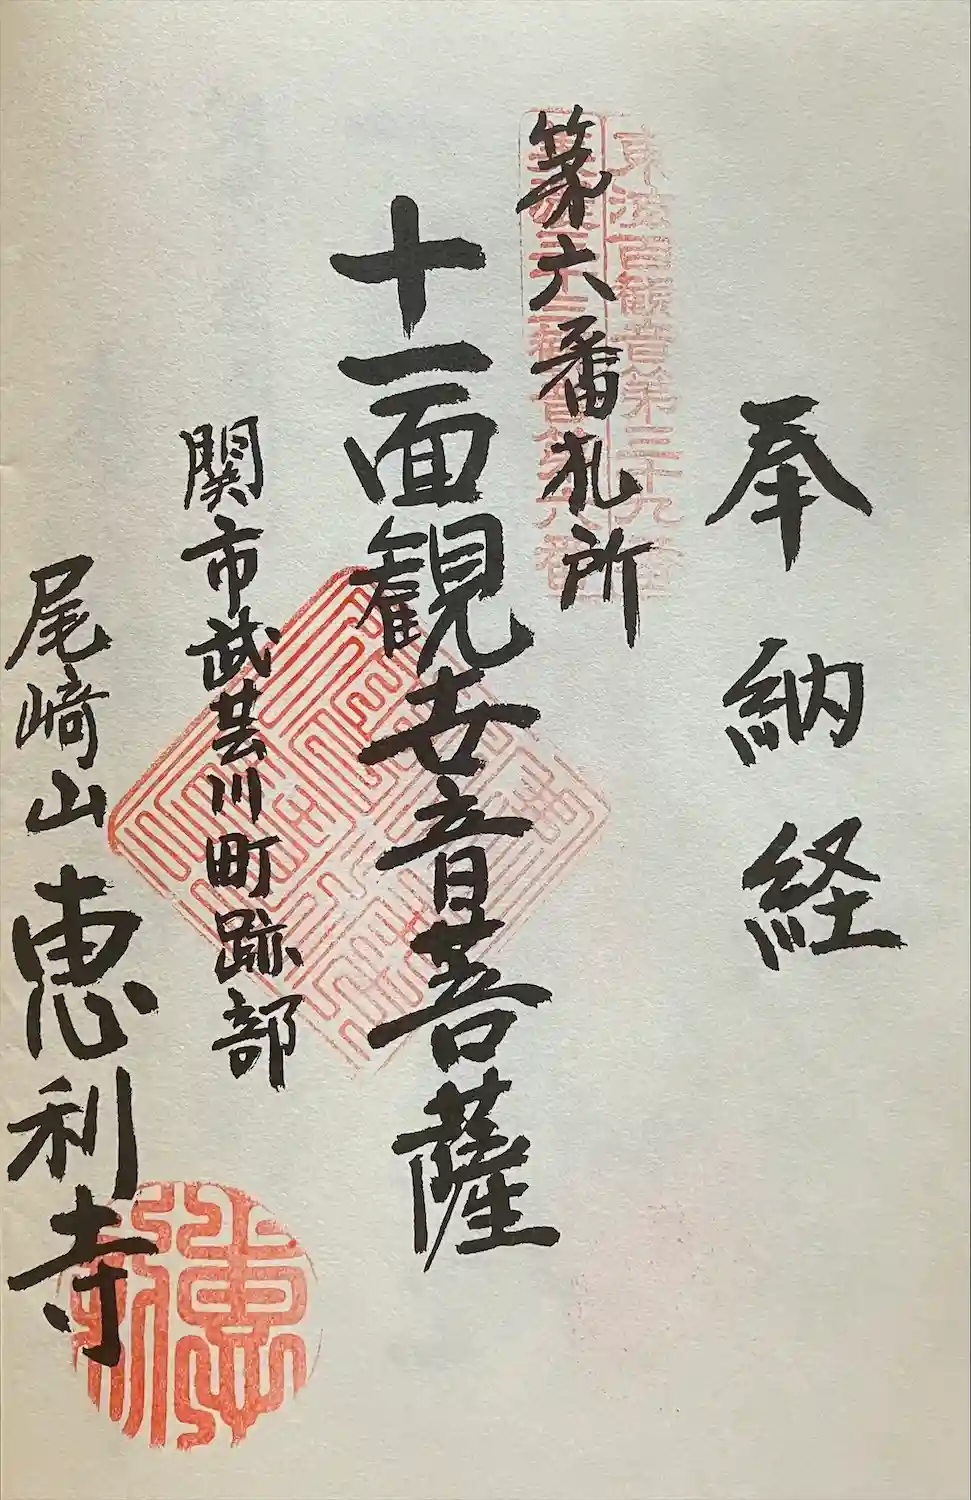 奉納経
東海百観音第三十九番
美濃三十三観音第六番
第六番札所
十一面観世音菩薩
関市武芸川町跡部
尾﨑山恵利寺